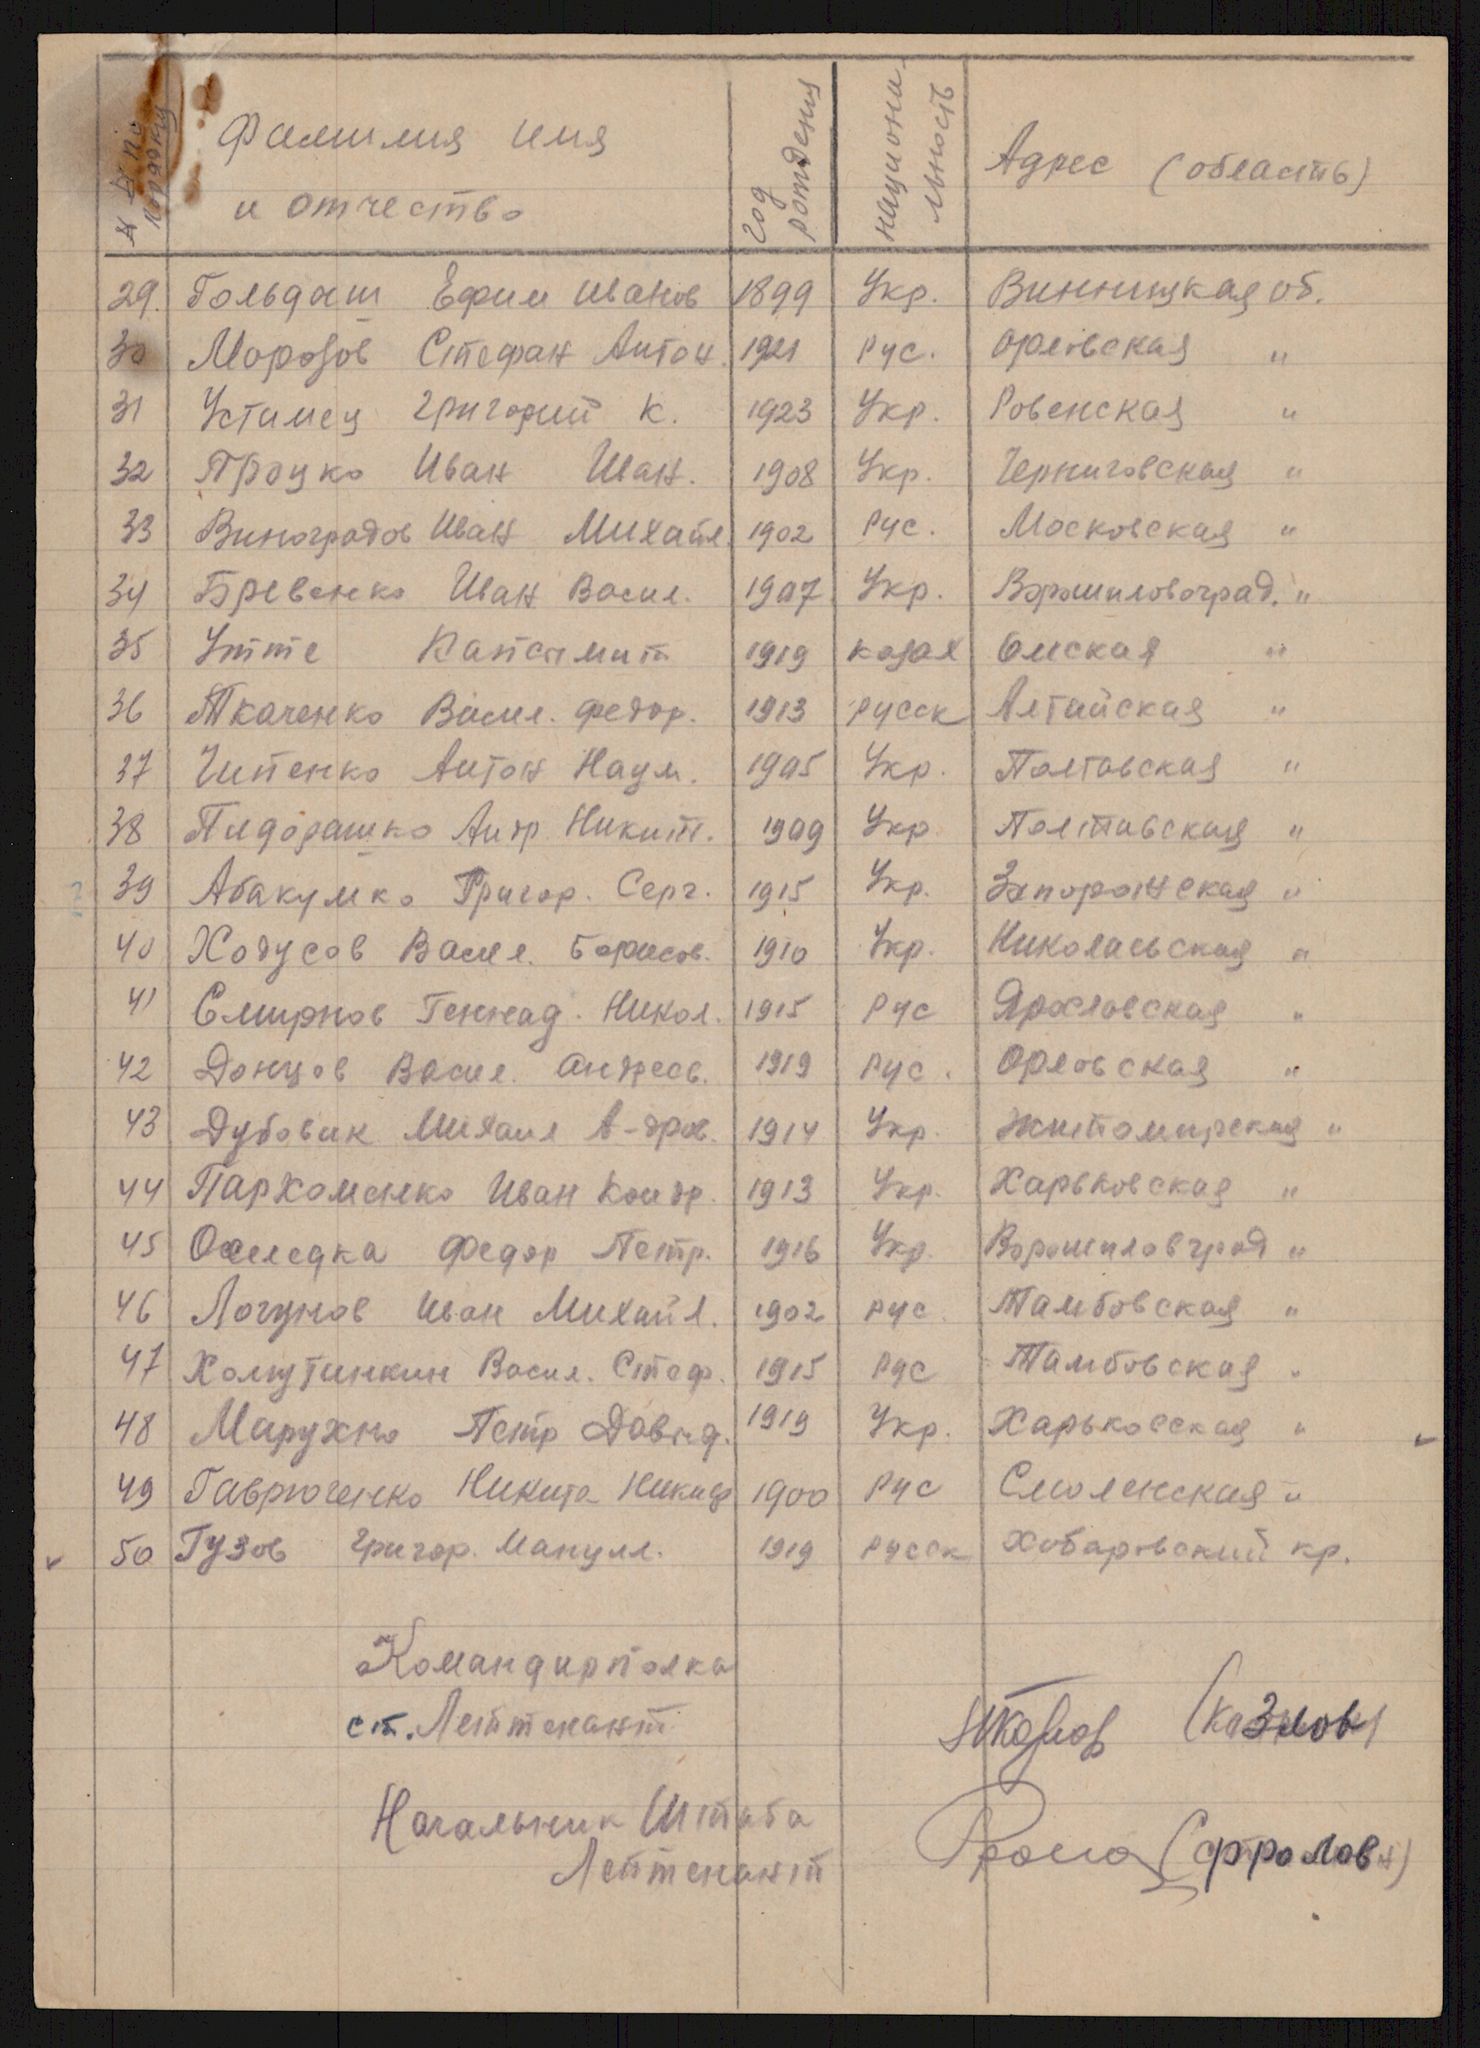 № № по порядку
Фамилия имя и отчество
Год рождения
национальность
Адрес (область)
29. Гольдаш Ефим Иванов 1899 Укр. Винницкая об.
30 Морозов Степан Антон. 1921 Рус. Орловская "
31 Устимец Григорий К. 1923 Укр. Ровенская "
32 Процко Иван Иван. 1908 Укр. Черниговская "
33 Виноградов Иван Михайл. 1902 Рус. Московская "
34 Бревенко Иван Васил. 1907 Укр. Ворошиловоград. "
35 Утте 1919 казах Омская "
36 Ткаченко Васил. Федор. 1913 Русск Алтайская "
37 Чипенко Антон Наум. 1905 Укр. Полтавская "
38 Пидорашко Андр. Никит. 1909 Укр Полтавская "
39 Абакумко Григор. Серг. 1915 Укр. Запорожская "
40 Ходусов Васил. Борисов. 1910 Укр. Николаевская "
41 Смирнов Геннад. Никол. 1915 Рус Ярославская "
42 Донцов Васил. Андреев. 1919 Рус. Орловская "
43 Дубовик Михаил А-дров. 1914 Укр. Житомирская "
44 Пархоменко Иван Кондр. 1913 Укр. Харьковская "
45 Оселедка Федор Петр. 1916 Укр. Ворошиловград "
46 Логунов Иван Михайл. 1902 Рус. Тамбовская "
47 Хомутинкин Васил. Стеф. 1915 Рус Тамбовская "
48 Марухно Петр Давид. 1919 Укр. Харьковская "
49 Гаврюченко Никита Никиф 1900 Рус Смоленская "
50 Гузов Григор. Мануил. 1919 Русск Хабаровский кр.
Командир полка
ст. Лейтенант (Козлов)
Начальник Штаба
Лейтенант (Фролов)